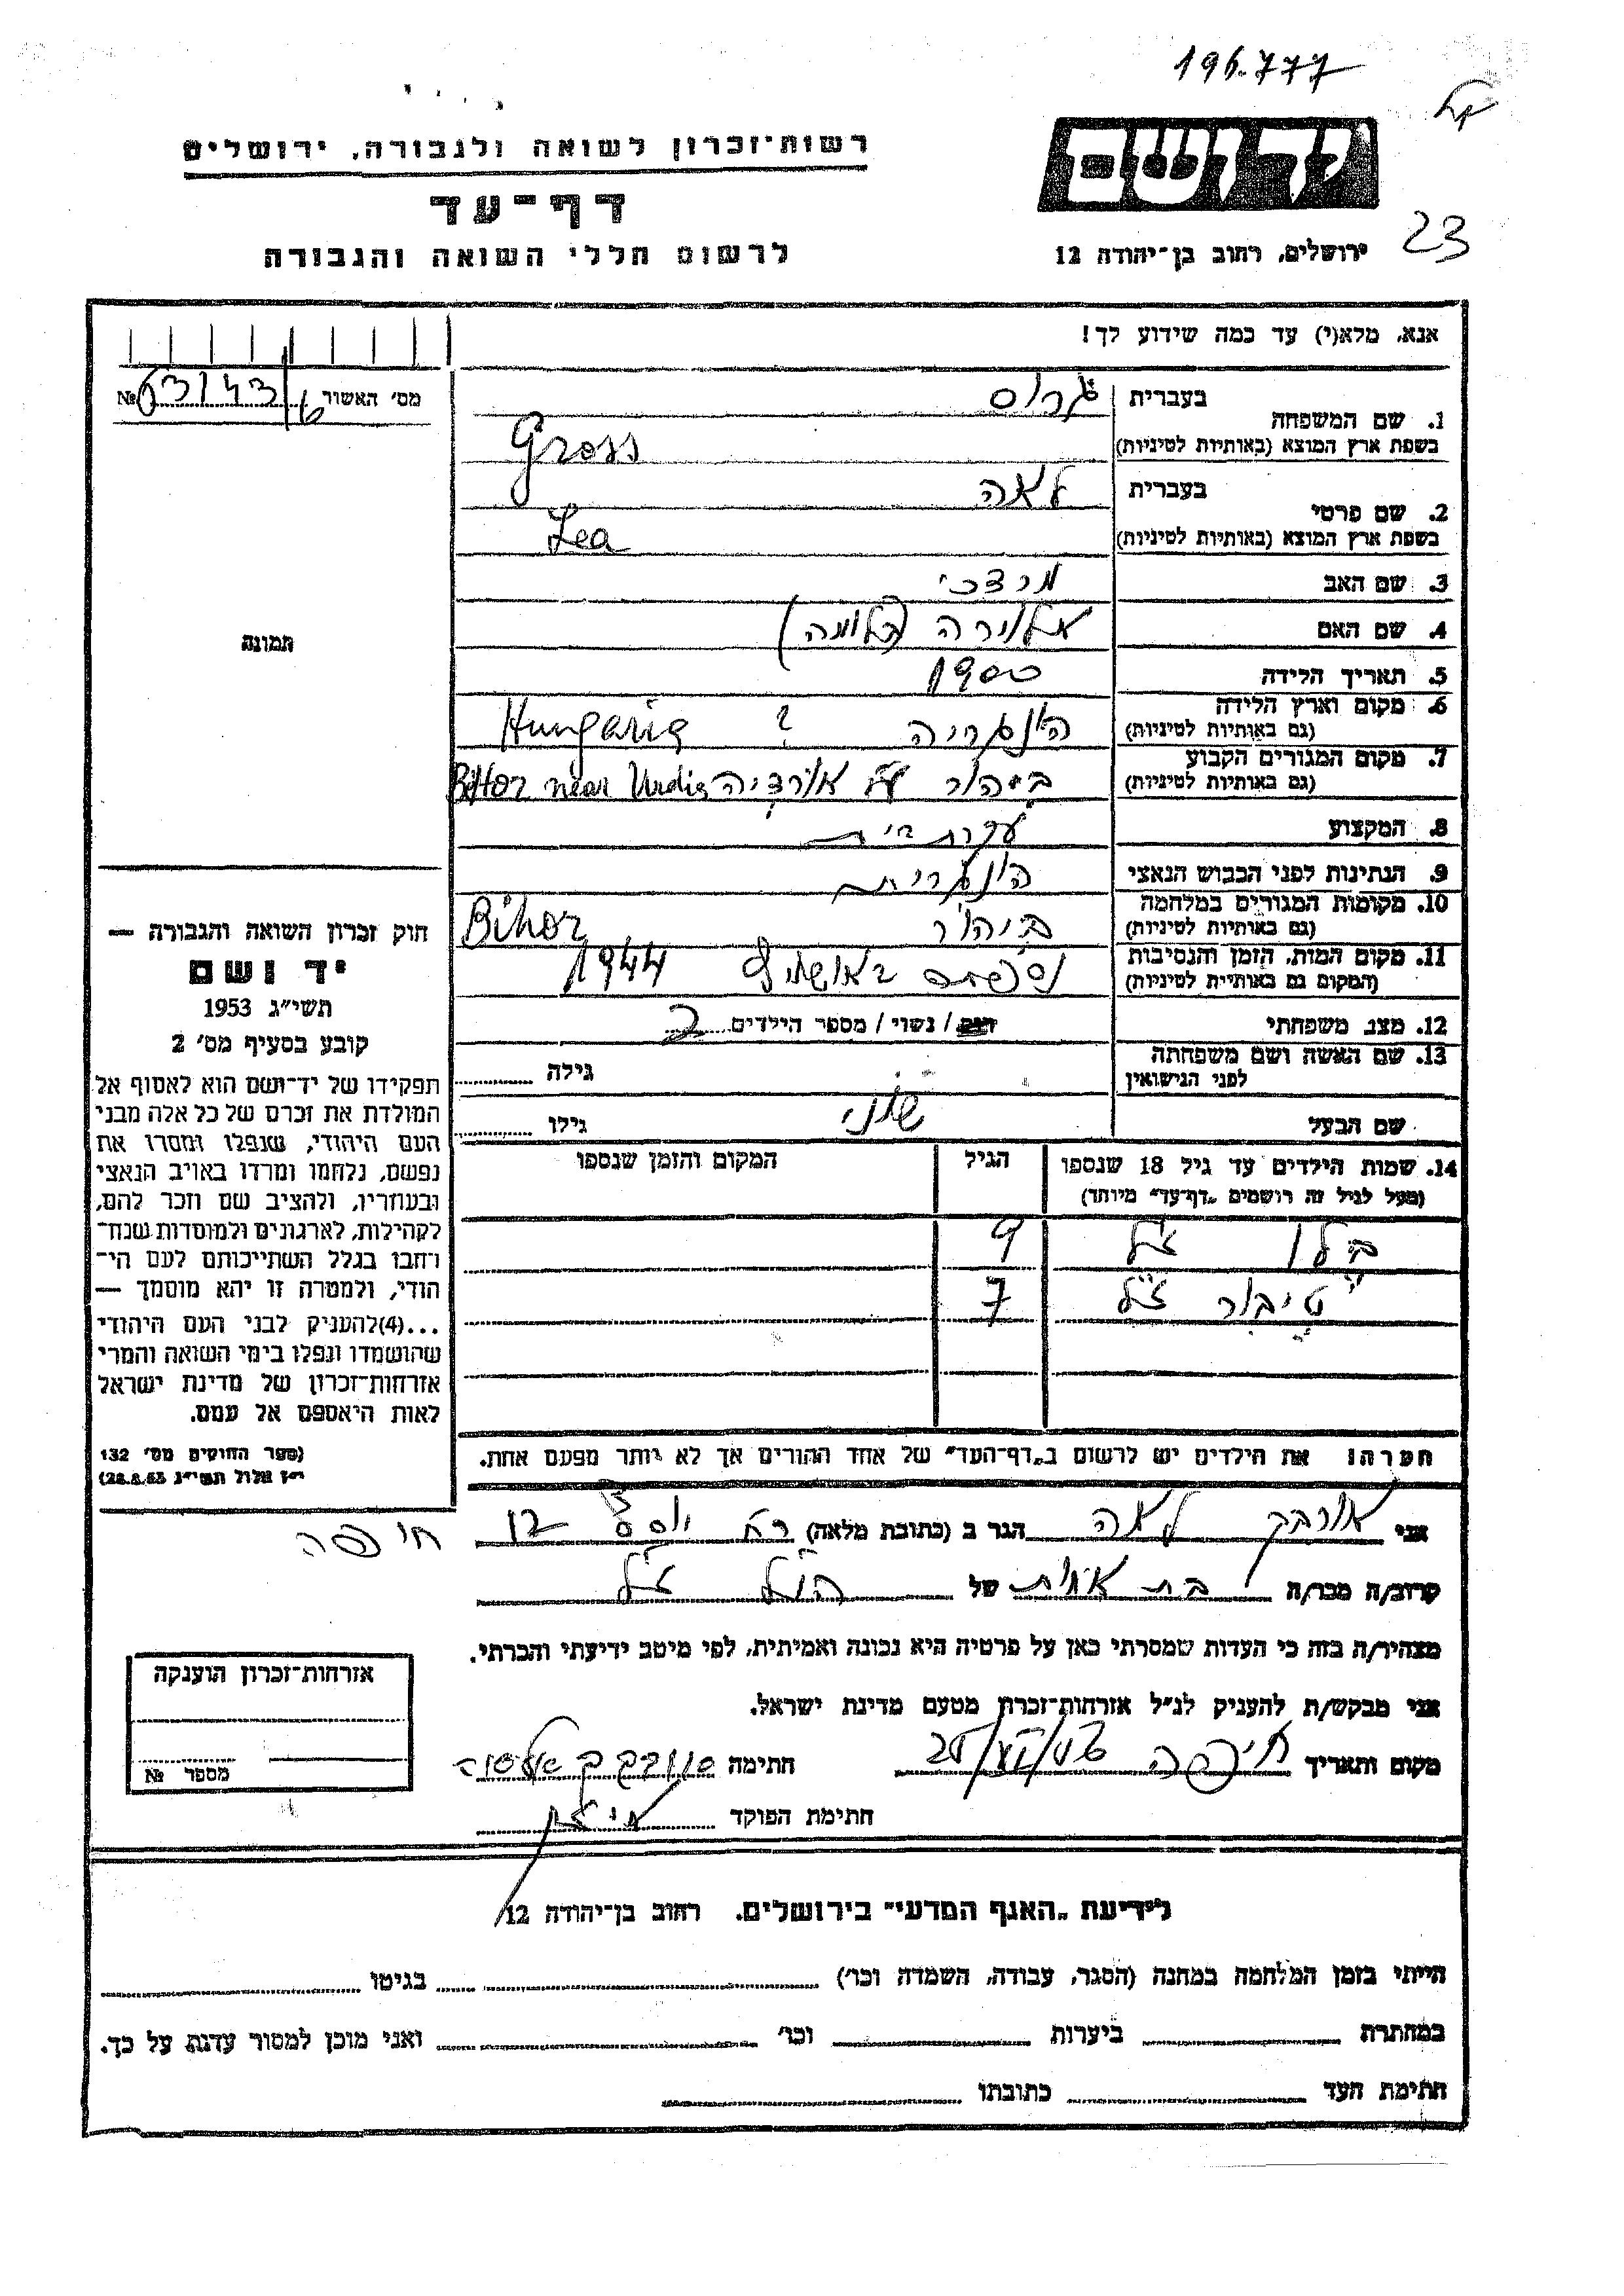 196.777
23
יד ושם
ירושלים, רחוב בן־יהודה 12
רשות־זכרון לשואה ולגבורה, ירושלים
דף־עד
לרשום חללי השואה והגבורה
אנא, מלא(י) עד כמה שידוע לך!
מס׳ האשור №
1. שם המשפחה
בעברית גרוס
בשפת ארץ המוצא (באותיות לטיניות) Gross
2. שם פרטי
בעברית לאה
בשפת ארץ המוצא (באותיות לטיניות) Lea
3. שם האב מרדכי
4. שם האם
5. תאריך הלידה 1900
6. מקום וארץ הלידה הונגריה ? Hungaria
(גם באותיות לטיניות)
7. מקום המגורים הקבוע ביהור ע״י אורדיה Bihor near Urdia
(גם באותיות לטיניות)
8. המקצוע עקרת בית
9. הנתינות לפני הכבוש הנאצי הונגרית
10. מקומות המגורים במלחמה ביהור Bihor
(גם באותיות לטיניות)
11. מקום המות, הזמן והנסיבות נספתה באושויץ 1944
(המקום גם באותיית לטיניות)
12. מצב משפחתי רווק / נשוי / מספר הילדים 2
13. שם האשה ושם משפחתה
לפני הנישואין
גילה
שם הבעל
גילו
14. שמות הילדים עד גיל 18 שנספו
(מעל לגיל זה רושמים „דף־עד״ מיוחד)
הגיל
המקום והזמן שנספו
ז״ל 9
טיבור ז״ל 7
הערה: את הילדים יש לרשום ב„דף־העד״ של אחד ההורים אך לא יותר מפעם אחת.
תמונה
חוק זכרון השואה והגבורה —
יד ושם
תשי״ג 1953
קובע בסעיף מס׳ 2
תפקידו של יד־ושם הוא לאסוף אל
המולדת את זכרם של כל אלה מבני
העם היהודי, שנפלו ומסרו את
נפשם, נלחמו ומרדו באויב הנאצי
ובעוזריו, ולהציב שם וזכר להם,
לקהילות, לארגונים ולמוסדות שנח־
רבו בגלל השתייכותם לעם הי־
הודי, ולמטרה זו יהא מוסמך —
...(4)להעניק לבני העם היהודי
שהושמדו ונפלו בימי השואה והמרי
אזרחות־זכרון של מדינת ישראל
לאות היאספם אל עמם.
(ספר החוקים מס׳ 132
י״ז אלול תשי״ג 28.8.53)
אני לאה הגר ב (כתובת מלאה) יוסף חיפה
קרוב/ה מכר/ה בת אחות של הנ״ל ז״ל
מצהיר/ה בזה כי העדות שמסרתי כאן על פרטיה היא נכונה ואמיתית, לפי מיטב ידיעתי והכרתי.
אני מבקש/ת להעניק לנ״ל אזרחות־זכרון מטעם מדינת ישראל.
מקום ותאריך חיפה
חתימה
חתימת הפוקד
אזרחות־זכרון הוענקה
מספר №
לידיעת „האגף המדעי״ בירושלים. רחוב בן־יהודה 12
הייתי בזמן המלחמה במחנה (הסגר, עבודה, השמדה וכו׳) בגיטו
במחתרת ביערות וכו׳ ואני מוכן למסור עדות על כך.
חתימת העד כתובתו